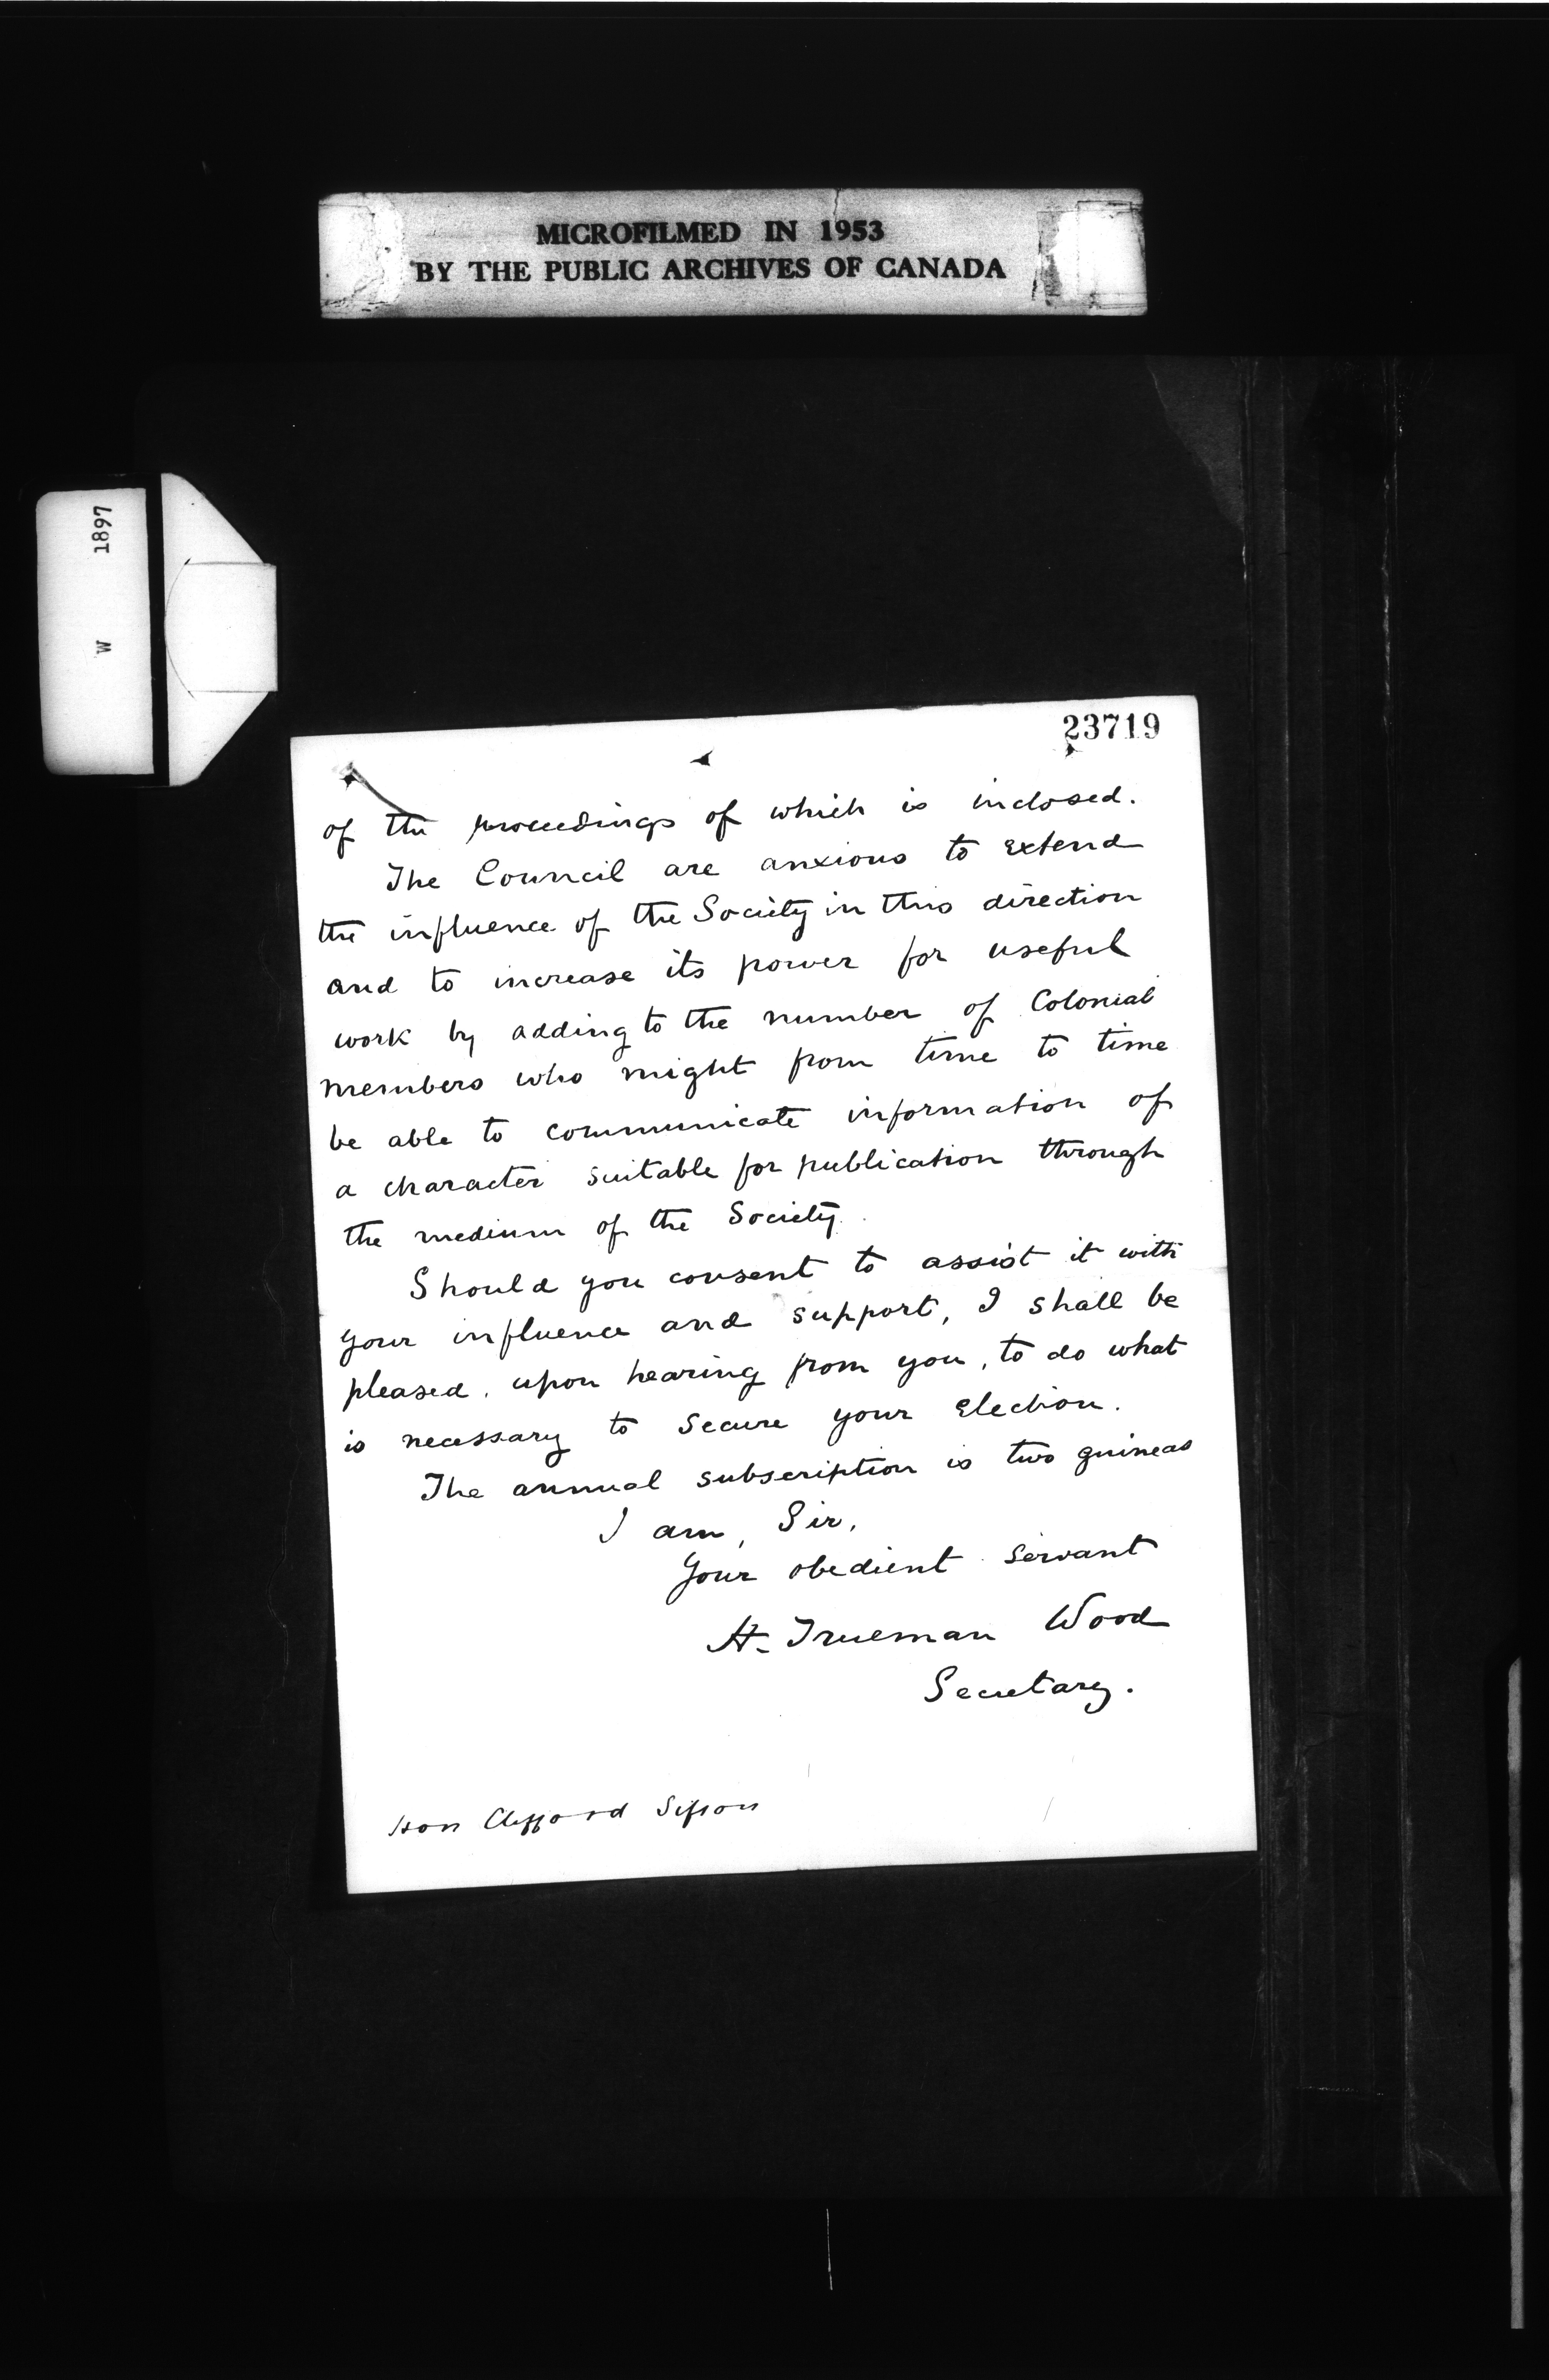 MICROFILMED IN 1953
BY THE PUBLIC ARCHIVES OF CANADA
W 1897
23719
of the proceedings of which is inclosed.
The Council are anxious to extend
the influence of the Society in this direction
and to increase its power for useful
work by adding to the number of Colonial
members who might from time to time
be able to communicate information of
a character suitable for publication through
the medium of the Society.
Should you consent to assist it with
your influence and support, I shall be
pleased, upon hearing from you, to do what
is necessary to secure your election.
The annual subscription is two guineas
I am, Sir,
Your obedient servant
H. Trueman Wood
Secretary.
Hon Clifford Sifton